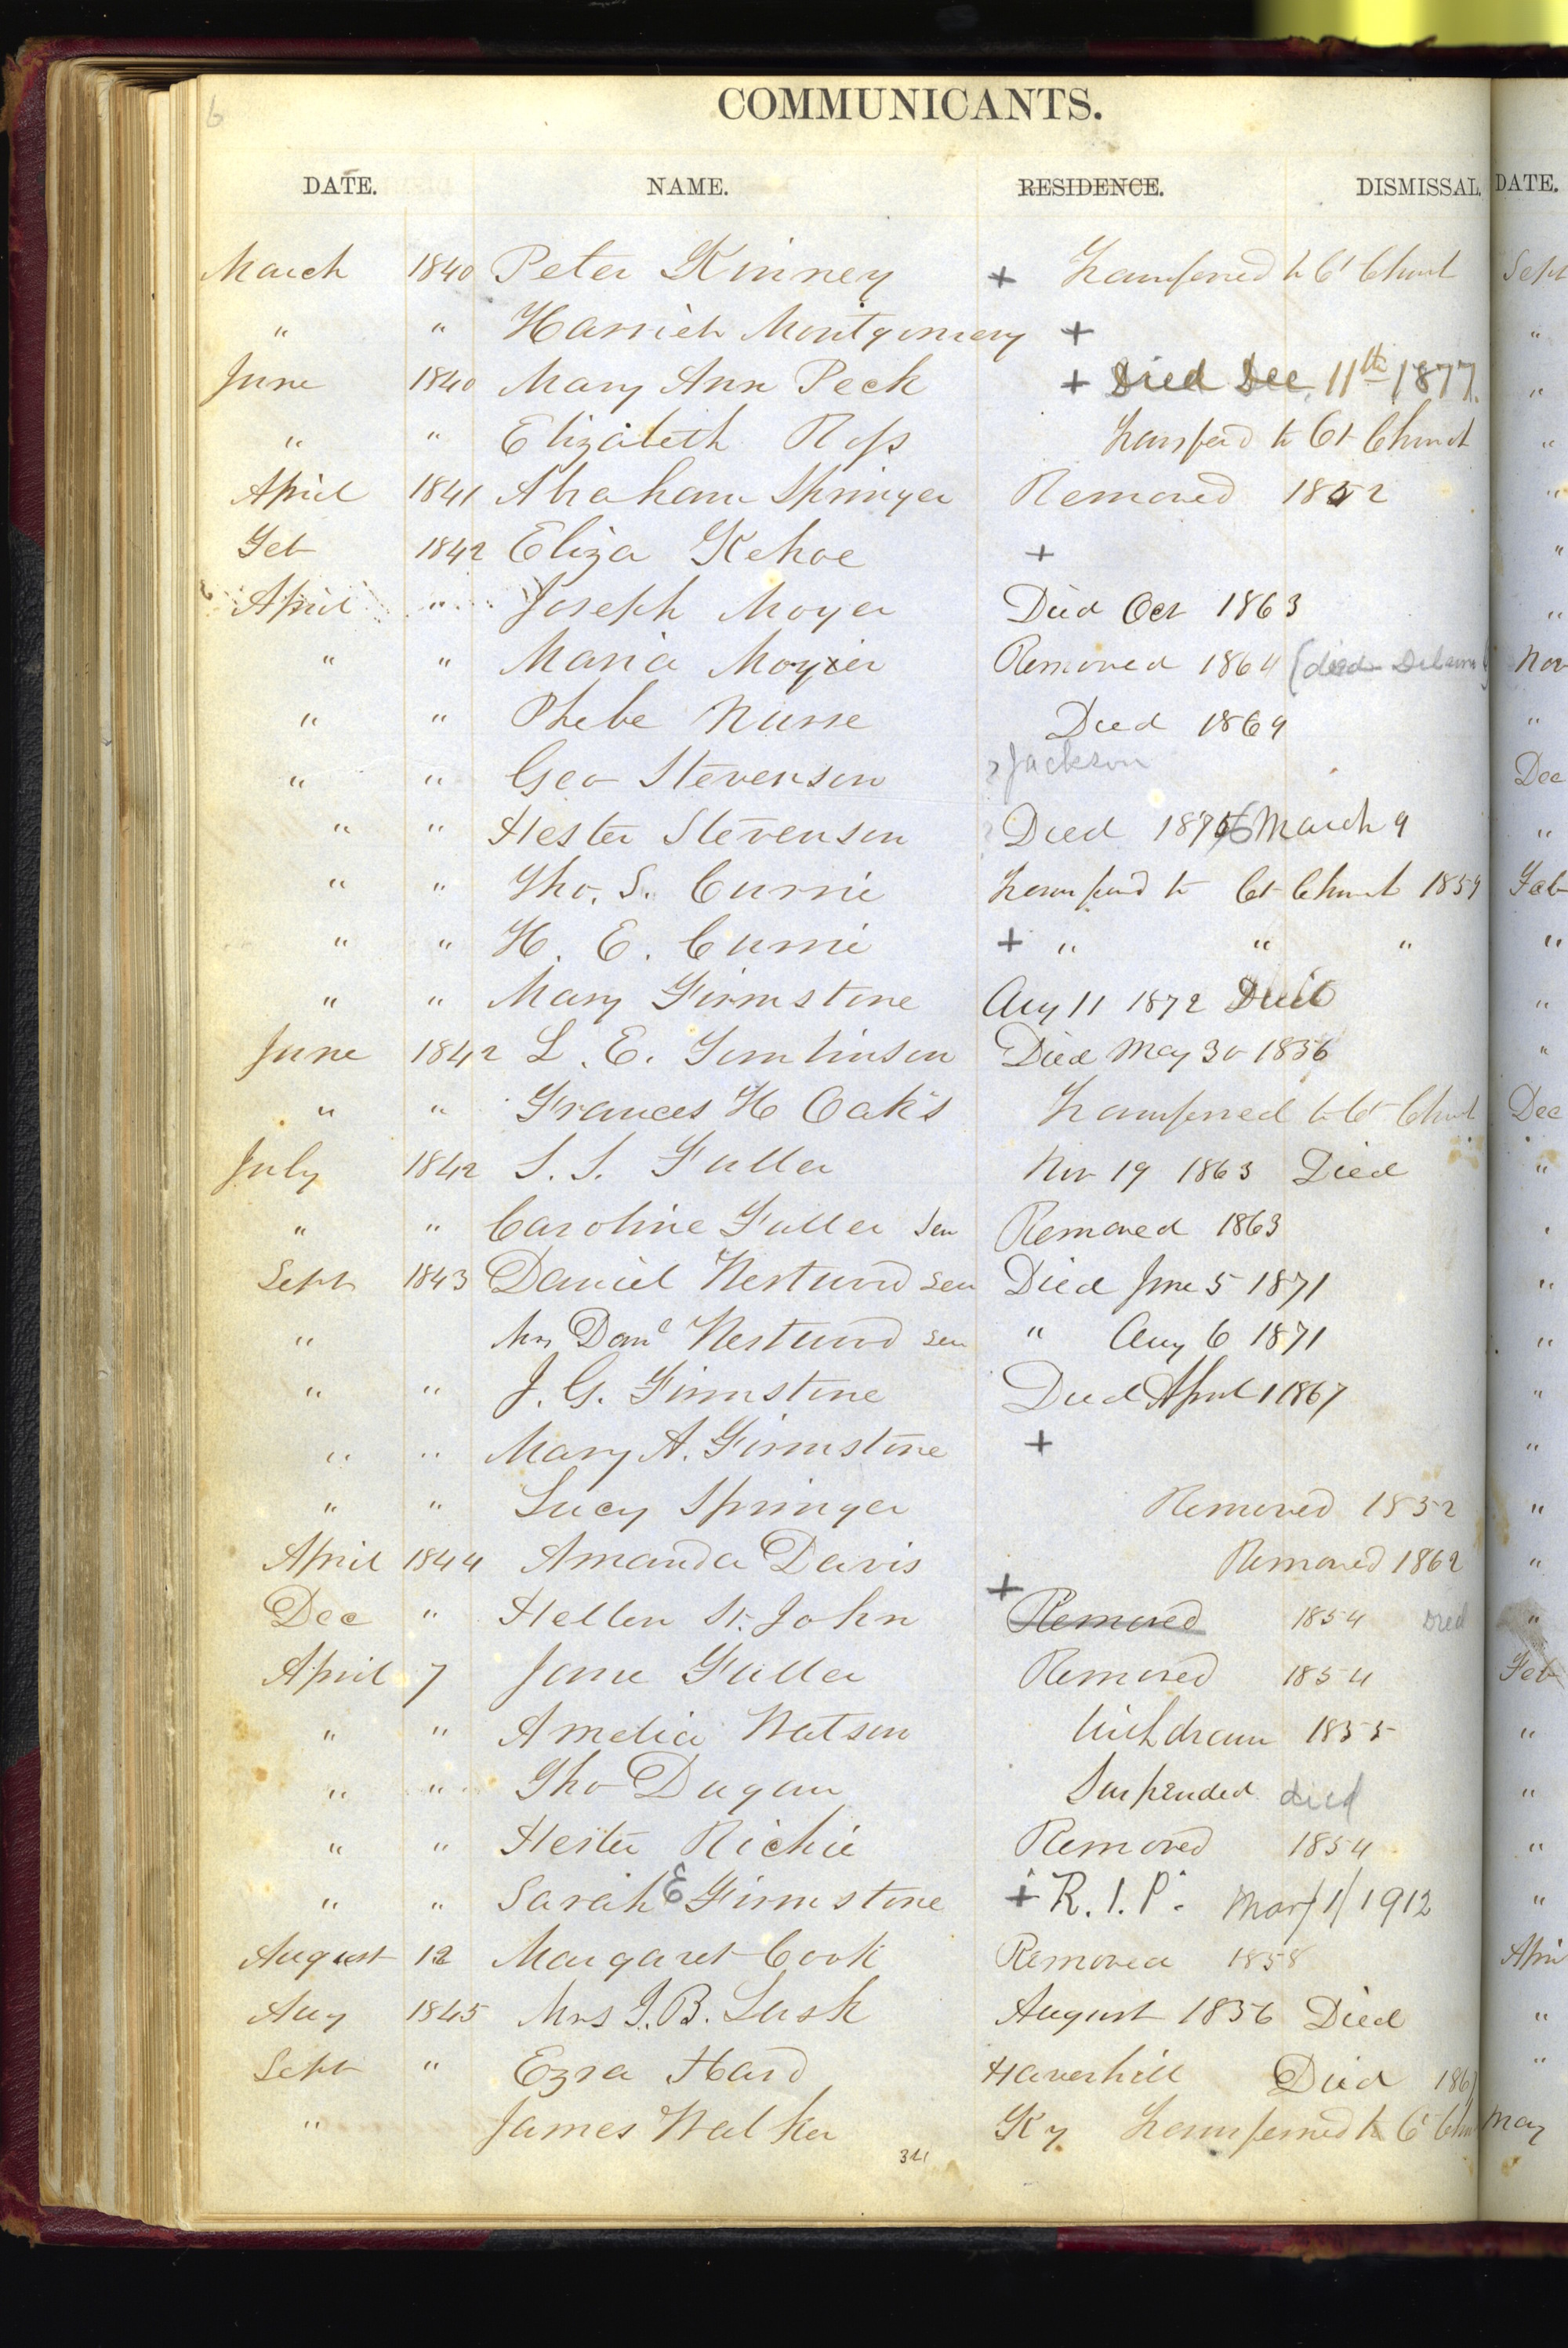 6
COMMUNICANTS.
DATE. NAME. RESIDENCE. DISMISSAL. DATE.
March 1840 Peter Kinney + Transferred to Ct Church Sept
" " Harriet Montgomery + "
June 1840 Mary Ann Peck + Died Dec. 11th 1877. "
" " Elizabeth Ross Transferd to Ct Church "
April 1841 Abraham Springer Removed 1852 "
Feb 1842 Eliza Kehoe + "
April " Joseph Moyer Died Oct 1863 "
" " Maria Moyer Removed 1864 (died Nov
" " Phebe Nurse Died 1869 "
" " Geo Stevenson ? Jackson Dec
" " Hester Stevenson Died 1876 March 9 "
" " Tho. S. Currie Transferd to Ct Church 1859 Feb
" " H. E. Currie + " " " "
" " Mary Firmstone Aug 11 1872 Died "
June 1842 L. E. Tomlinson Died May 30 1856 "
" " Frances H Oaks Transferred to Ct Church Dec
July 1842 S. S. Fuller Nov 19 1863 Died "
" " Caroline Fuller Sen Removed 1863
Sept 1843 Daniel Westwood Sen Died June 5 1871 "
" Mrs Danl Westwood Sen " Aug 6 1871 "
" " J. G. Firmstone Died April 1 1867 "
" " Mary A. Firmstone + "
" " Lucy Springer Removed 1852 "
April 1844 Amanda Davis Removed 1862 "
Dec " Hellen St. John + Removed 1854 Died "
April 7 Jane Fuller Removed 1854 Feb
" " Amelia Watson Withdrawn 1855 "
" " Tho Dugan Suspended died "
" " Hester Richie Removed 1854 "
" " Sarah E Firmstone + R. I. P. Mar/1/1912 "
August 12 Margaret Cook Removed 1858 Apri
Aug 1845 Mrs J. B. Lusk August 1856 Died "
Sept " Ezra Hard Haverhill Died 186 "
" James Walker Ky Transferred to Ct Chu May